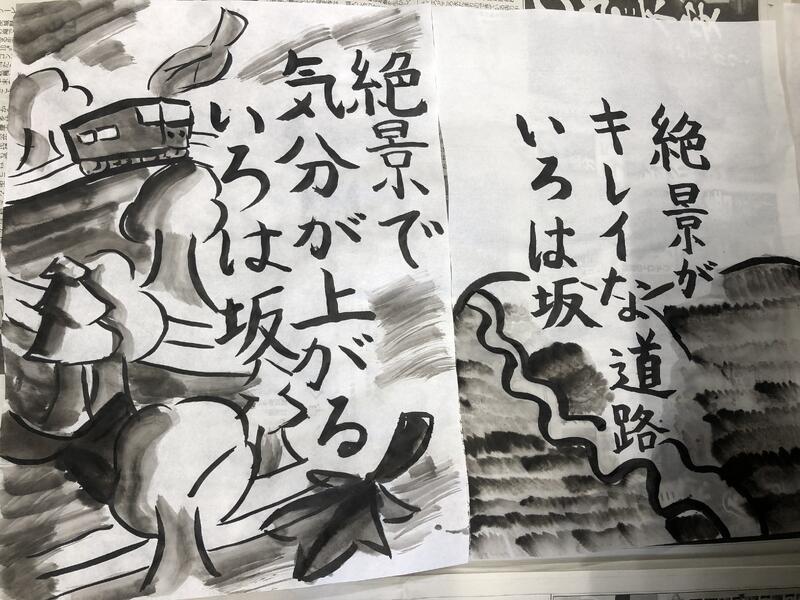 絶景が
キレイな道路
いろは坂
絶景で
気分が上がる
いろは坂